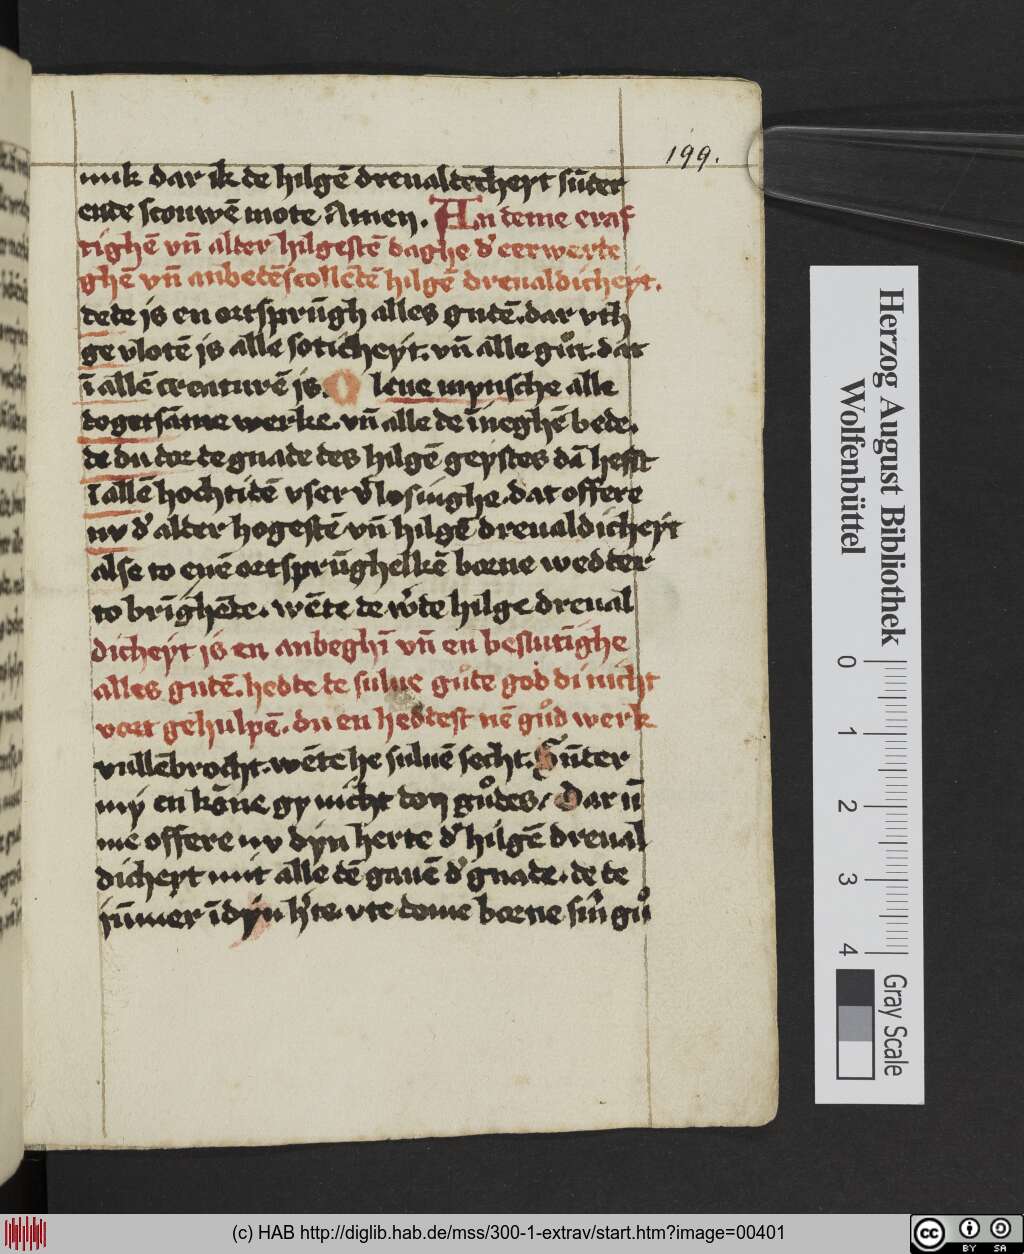 199.
mik dar ik de hilgē dreualdecheyt sūder
ende scouwē mote Amen. An deme eraf
tighē vn̄ alder hilgestē daghe d' eerwerde
ghē vn̄ anbedēscollēdē hilgē dreualdicheyt.
dede is en ortsprūgh alles gudē. dar vth
ge vlotē is alle soticheyt. vn̄ alle gůt. dat
ī allē creaturē is. O leue mynsche alle
dogetsāme werke. vn̄ alle de īneghē bede.
de du dor de gnade des hilgē geystes dā hefst
ī allē hochtidē vser v'losinghe. dat offere
nv d' alder hogestē vn̄ hilgē dreualdicheyt
alse to enē ortsprūghelkē borne wedder
to brīghēde. wēte de w'de hilge dreual
dicheyt is en anbeghī vn̄ en beslutīghe
alles gudē. hedde de sulue gůde god di nicht
vort gehulpē. du en heddest nē gůd werk
vullēbrocht. wēte he suluē secht. Sūder
my en kōne gy nicht don gůdes / Dar ū
me offere nv dyn herte d' hilgē dreual
dicheyt mit alle dē gauē d' gnade. de de
iūmer ī dyn h'te. vte deme borne sin' gů
Herzog August Bibliothek
Wolfenbüttel
0 1 2 3 4
Gray Scale
(c) HAB http://diglib.hab.de/mss/300-1-extrav/start.htm?image=00401
cc BY SA